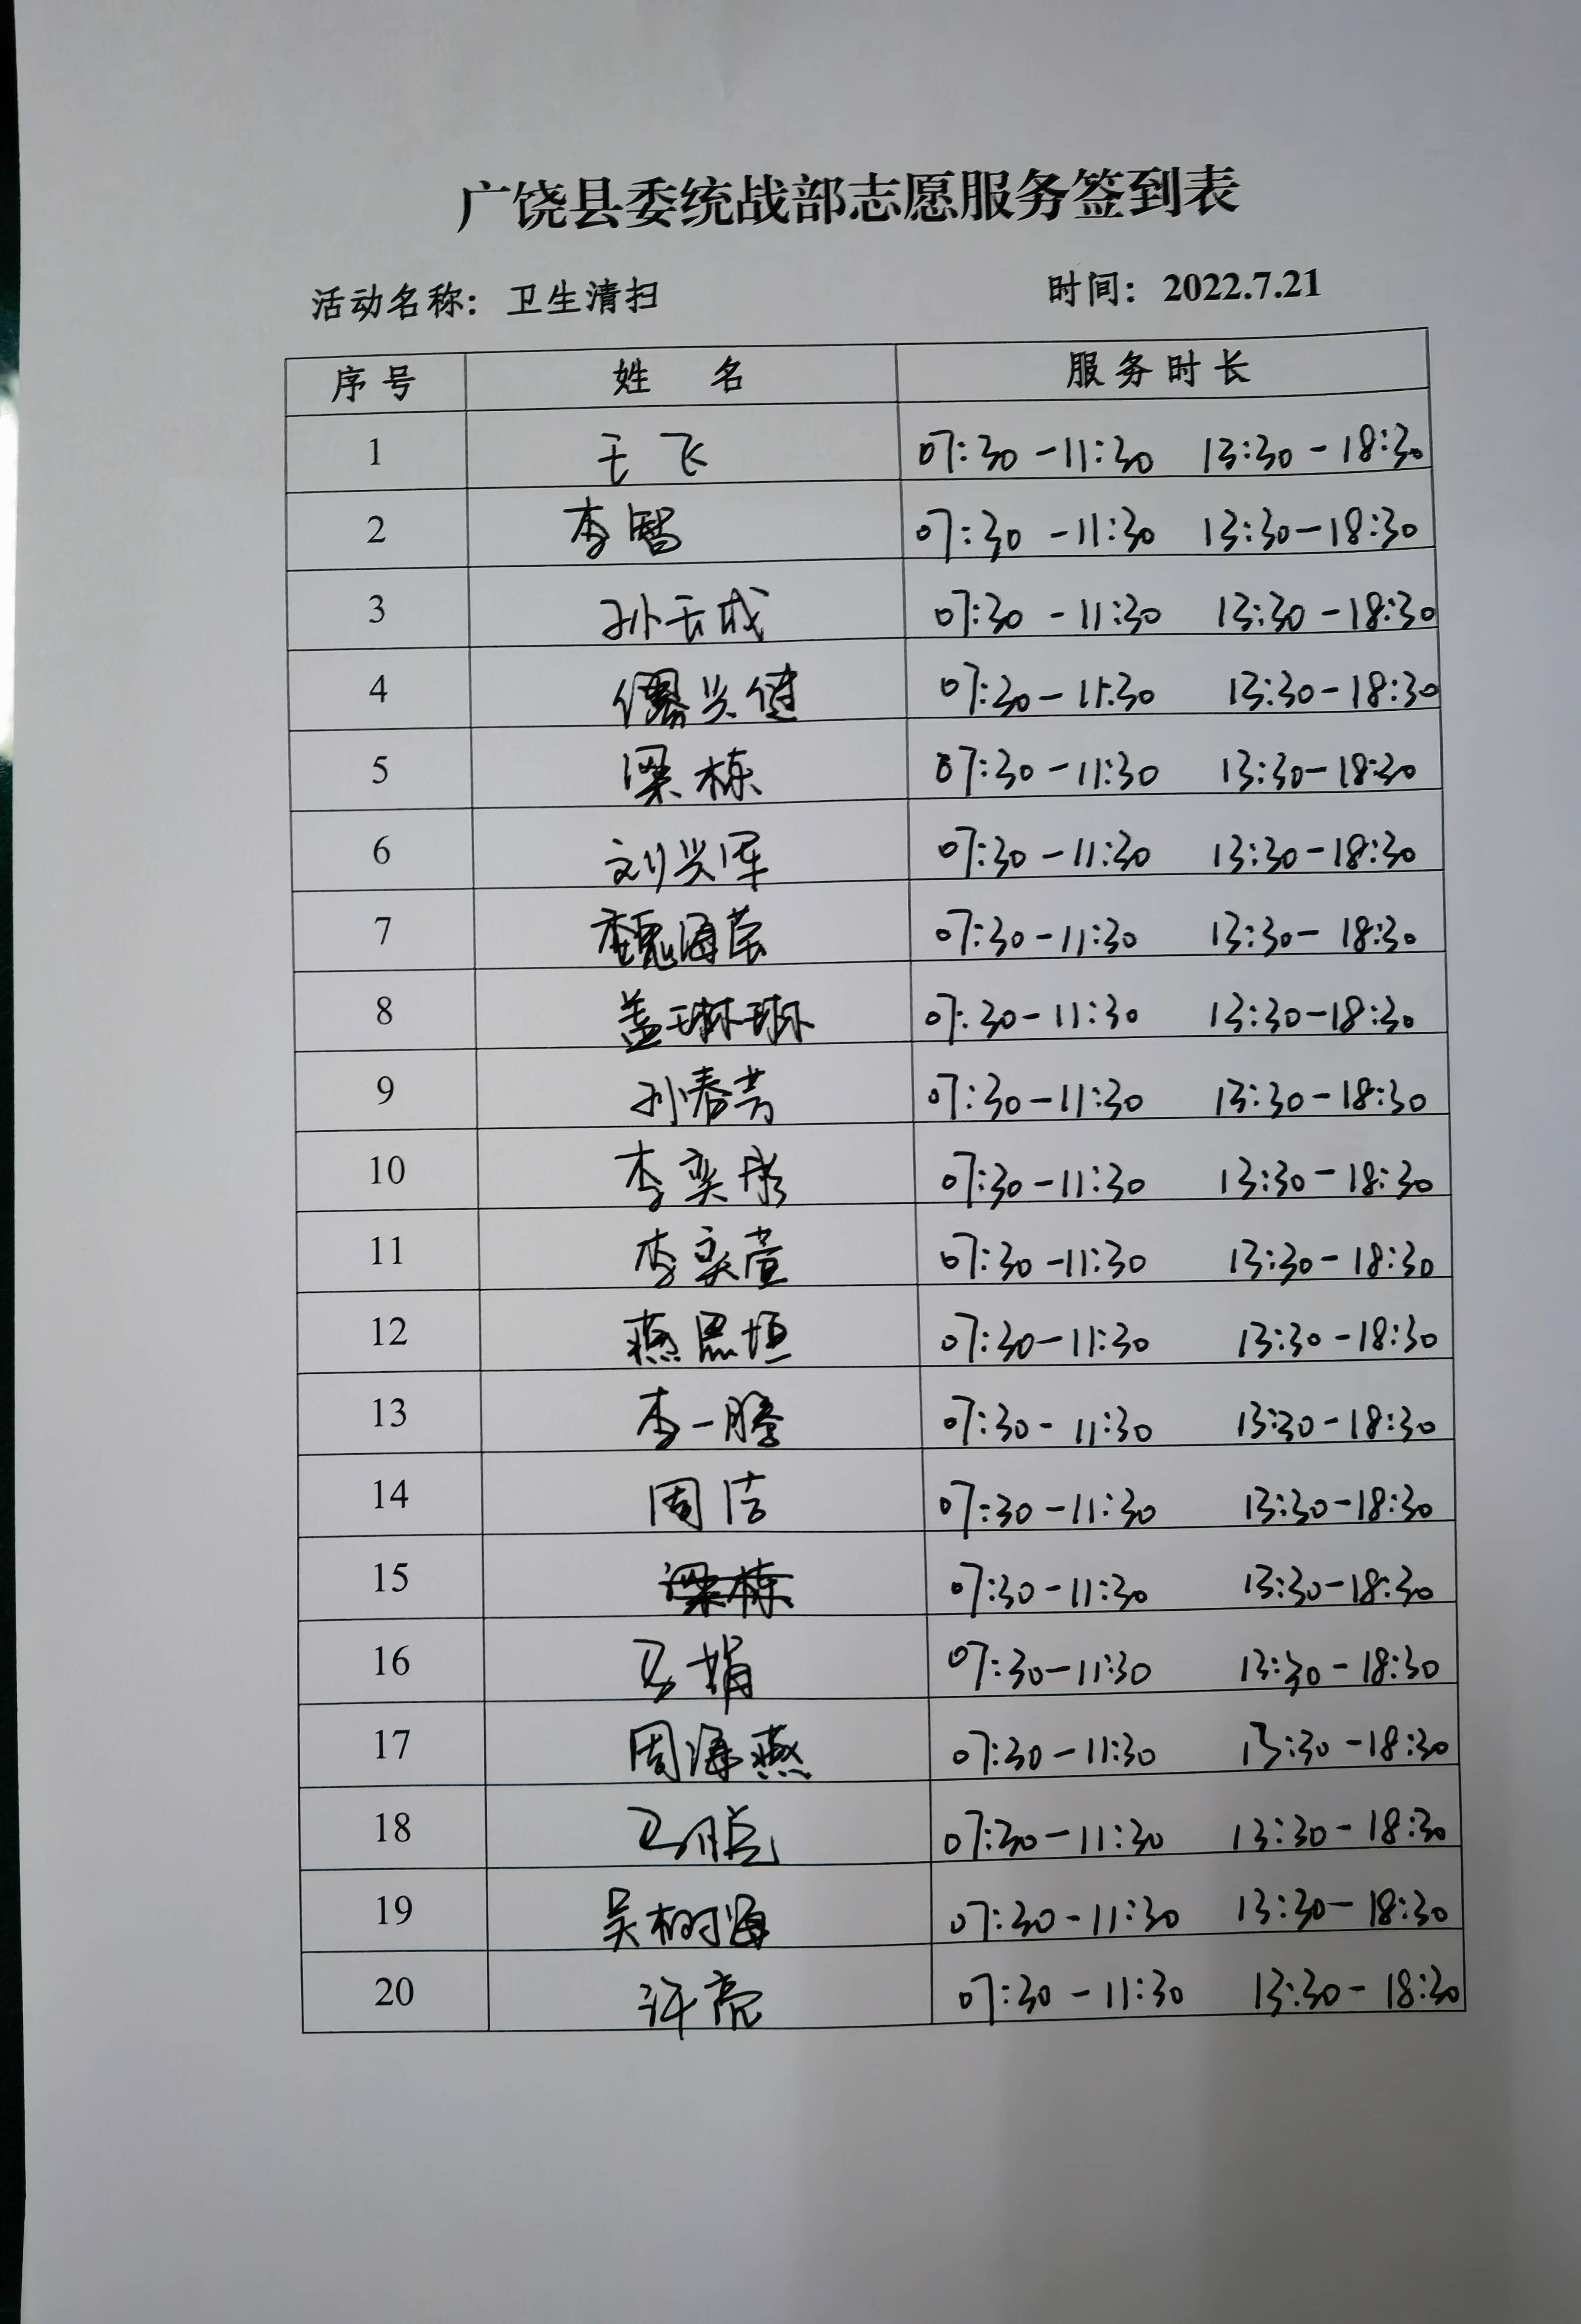 广饶县委统战部志愿服务签到表
活动名称：卫生清扫 时间：2022.7.21
序号 姓 名 服务时长
1 王飞 07:30-11:30 13:30-18:30
2 李智 07:30-11:30 13:30-18:30
3 孙天成 07:30-11:30 13:30-18:30
4 07:30-11:30 13:30-18:30
5 梁栋 07:30-11:30 13:30-18:30
6 刘兴军 07:30-11:30 13:30-18:30
7 魏海荣 07:30-11:30 13:30-18:30
8 盖琳琳 07:30-11:30 13:30-18:30
9 孙春芳 07:30-11:30 13:30-18:30
10 李奕彤 07:30-11:30 13:30-18:30
11 李奕萱 07:30-11:30 13:30-18:30
12 燕思恒 07:30-11:30 13:30-18:30
13 李一腾 07:30-11:30 13:30-18:30
14 周洁 07:30-11:30 13:30-18:30
15 梁栋 07:30-11:30 13:30-18:30
16 马娟 07:30-11:30 13:30-18:30
17 周海燕 07:30-11:30 13:30-18:30
18 07:30-11:30 13:30-18:30
19 吴树海 07:30-11:30 13:30-18:30
20 许亮 07:30-11:30 13:30-18:30